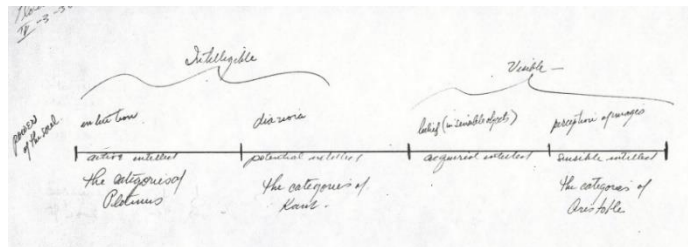 IV-3-3
Intelligible
Visible —
powers
of the soul
intuition
dianoia
belief (in sensible objects)
perception of images
active intellect
potential intellect
acquired intellect
sensible intellect
the categories of
Plotinus
the categories of
Kant -
the categories of
Aristotle